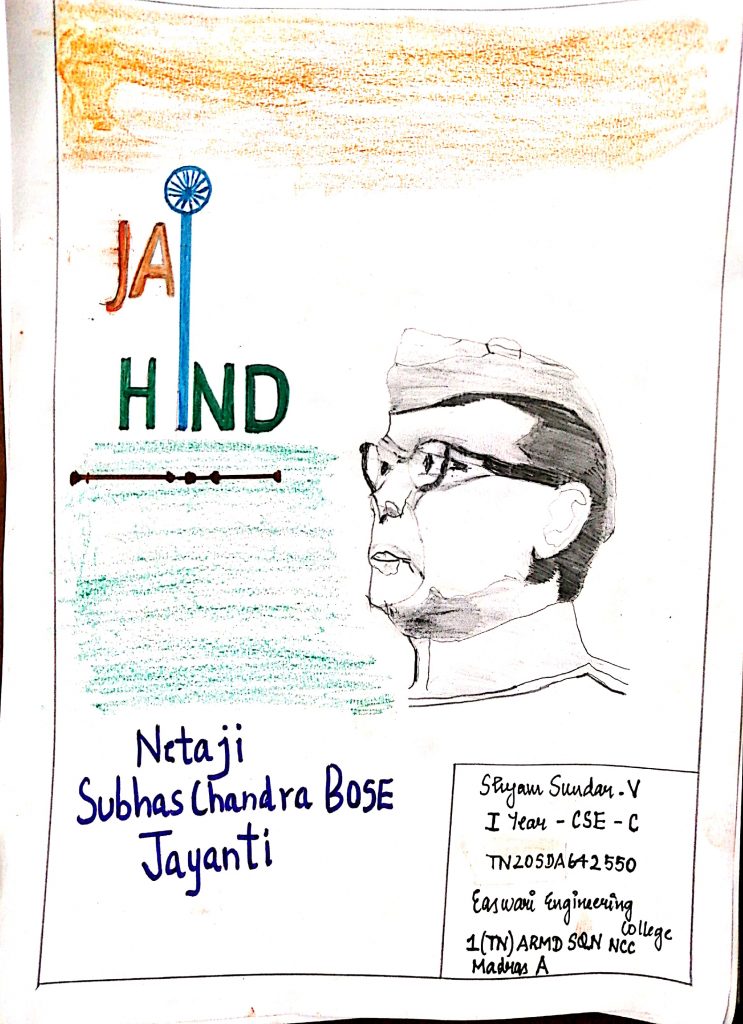 JAI
HIND
Netaji
Subhas Chandra BOSE
Jayanti
Shyam Sundar - V
I Year - CSE - C
TN20SDA642550
Easwari Engineering
College
1(TN) ARMD SQN NCC
Madras A